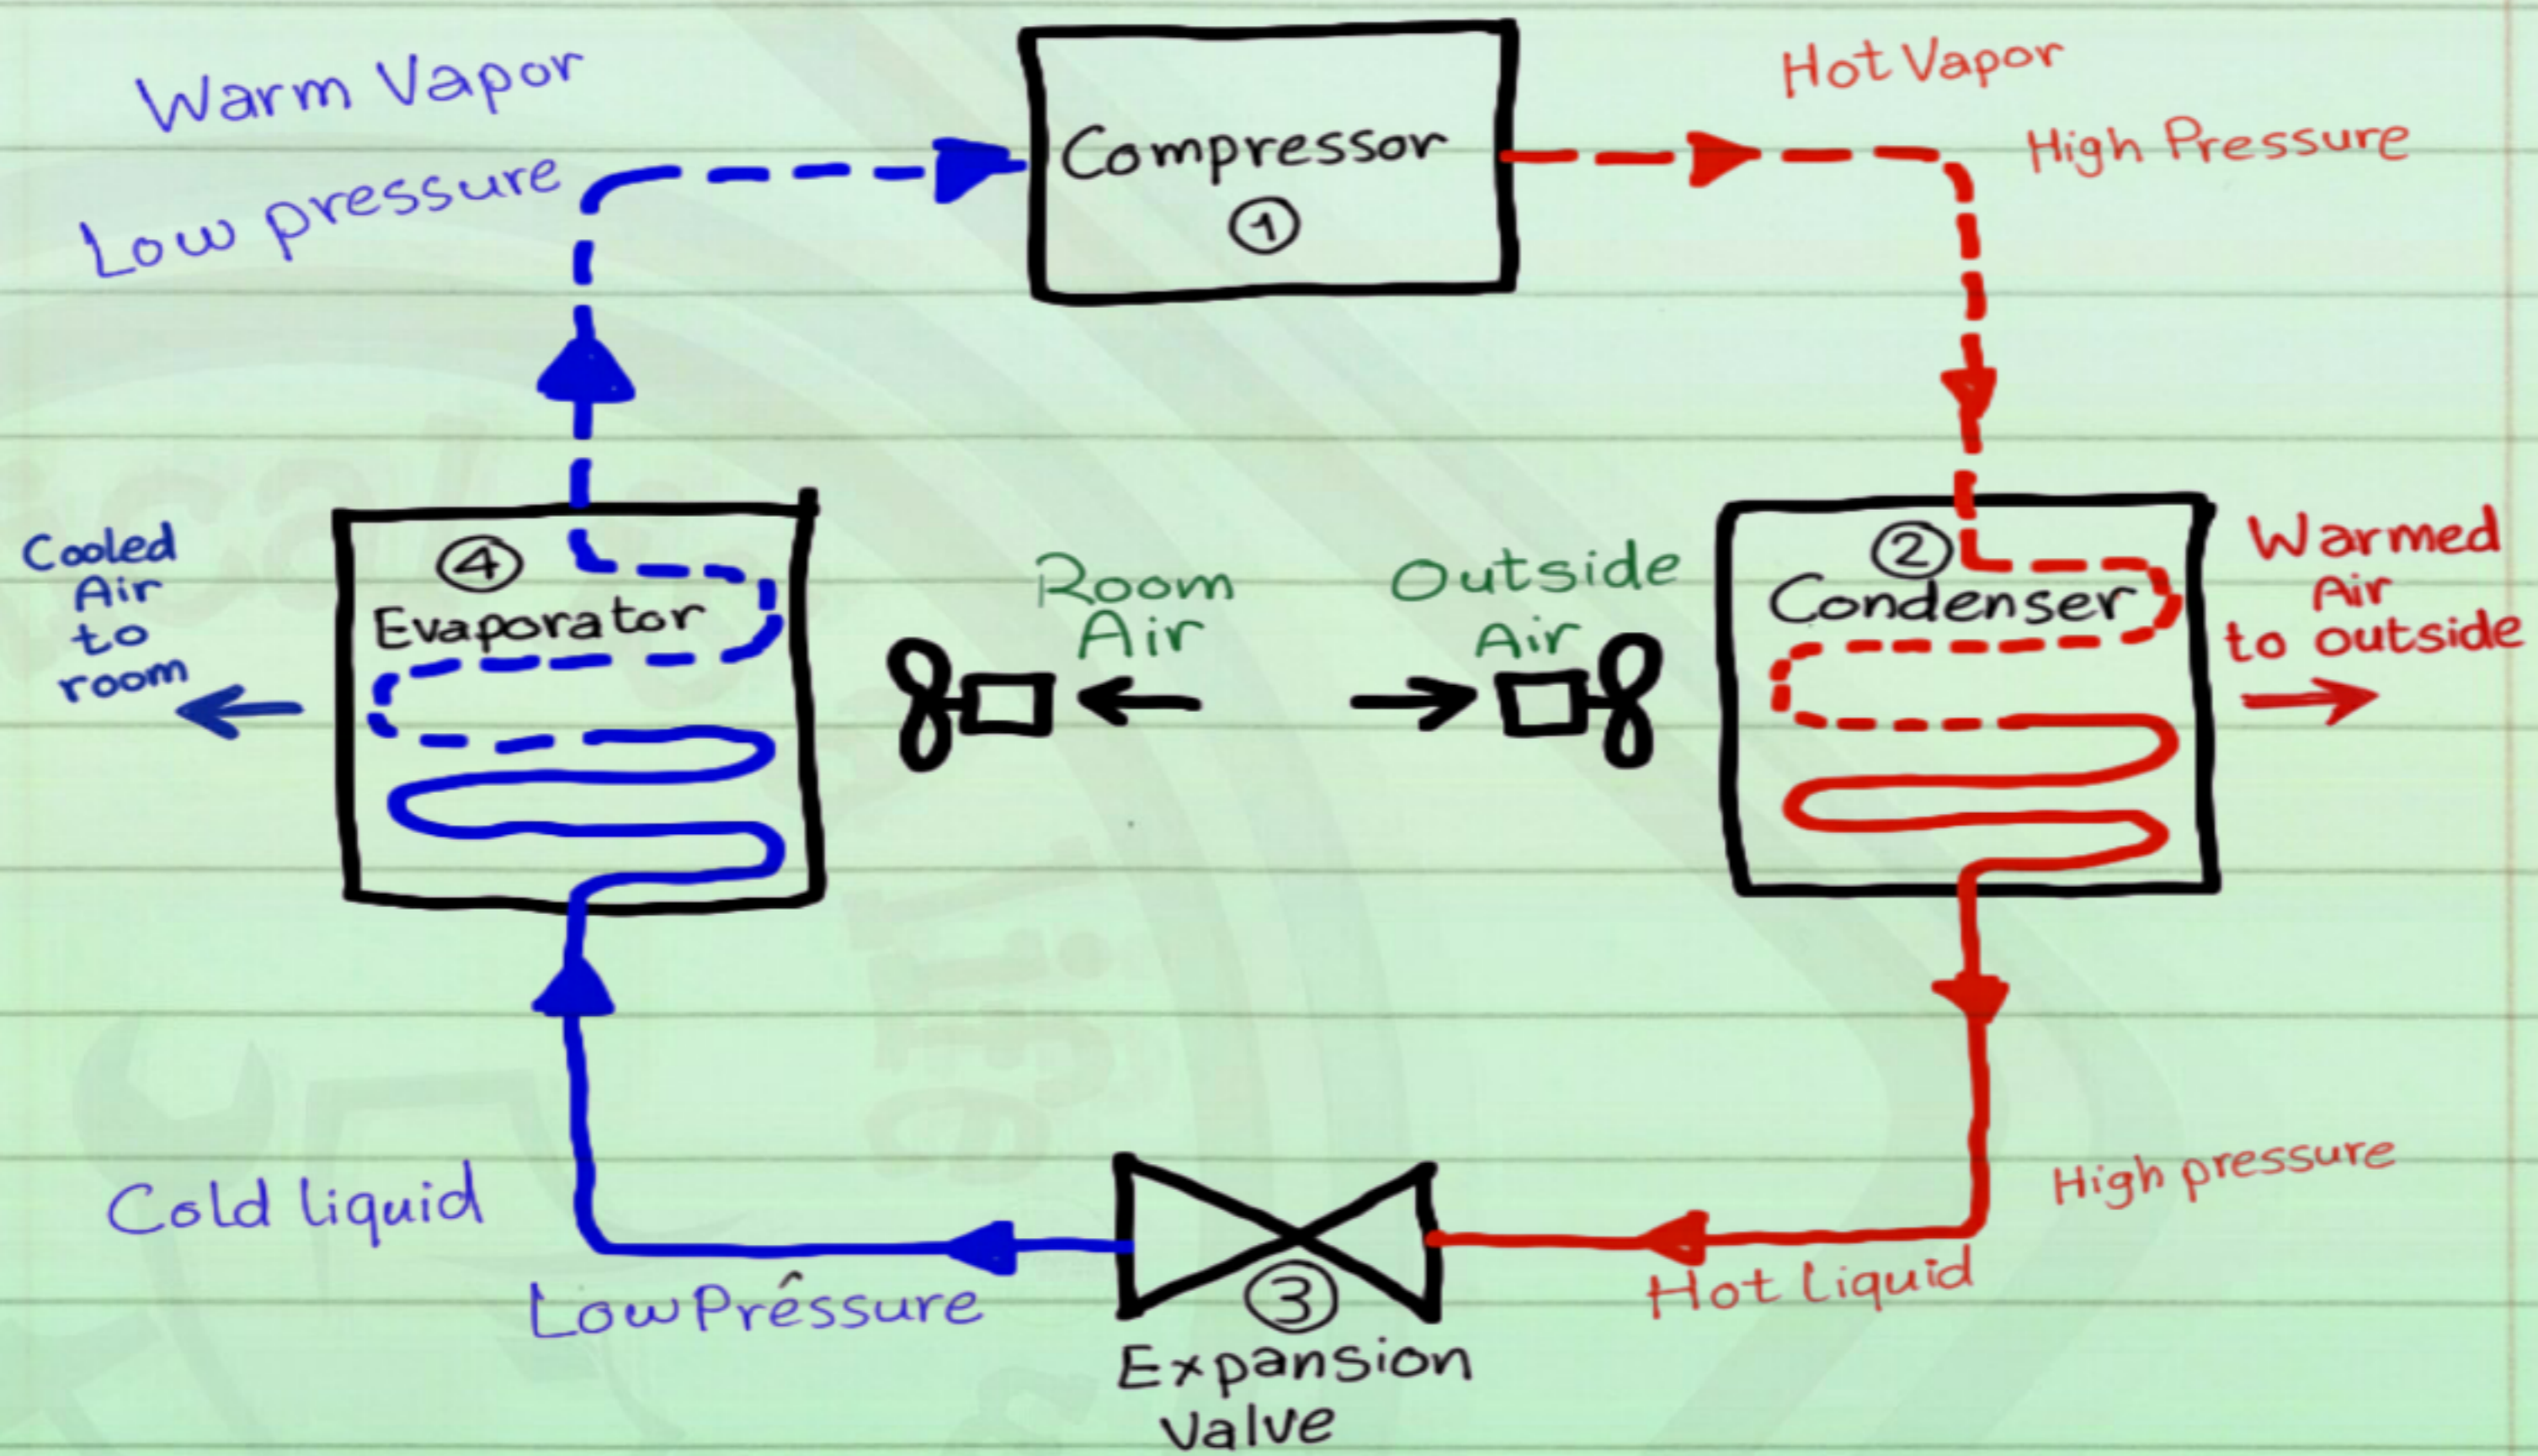 Warm Vapor
Low pressure
Compressor
1
Hot Vapor
High Pressure
Cooled
Air
to
room
4
Evaporator
Room
Air
Outside
Air
2
Condenser
Warmed
Air
to outside
Cold liquid
Low Pressure
3
Expansion
Valve
High pressure
Hot Liquid